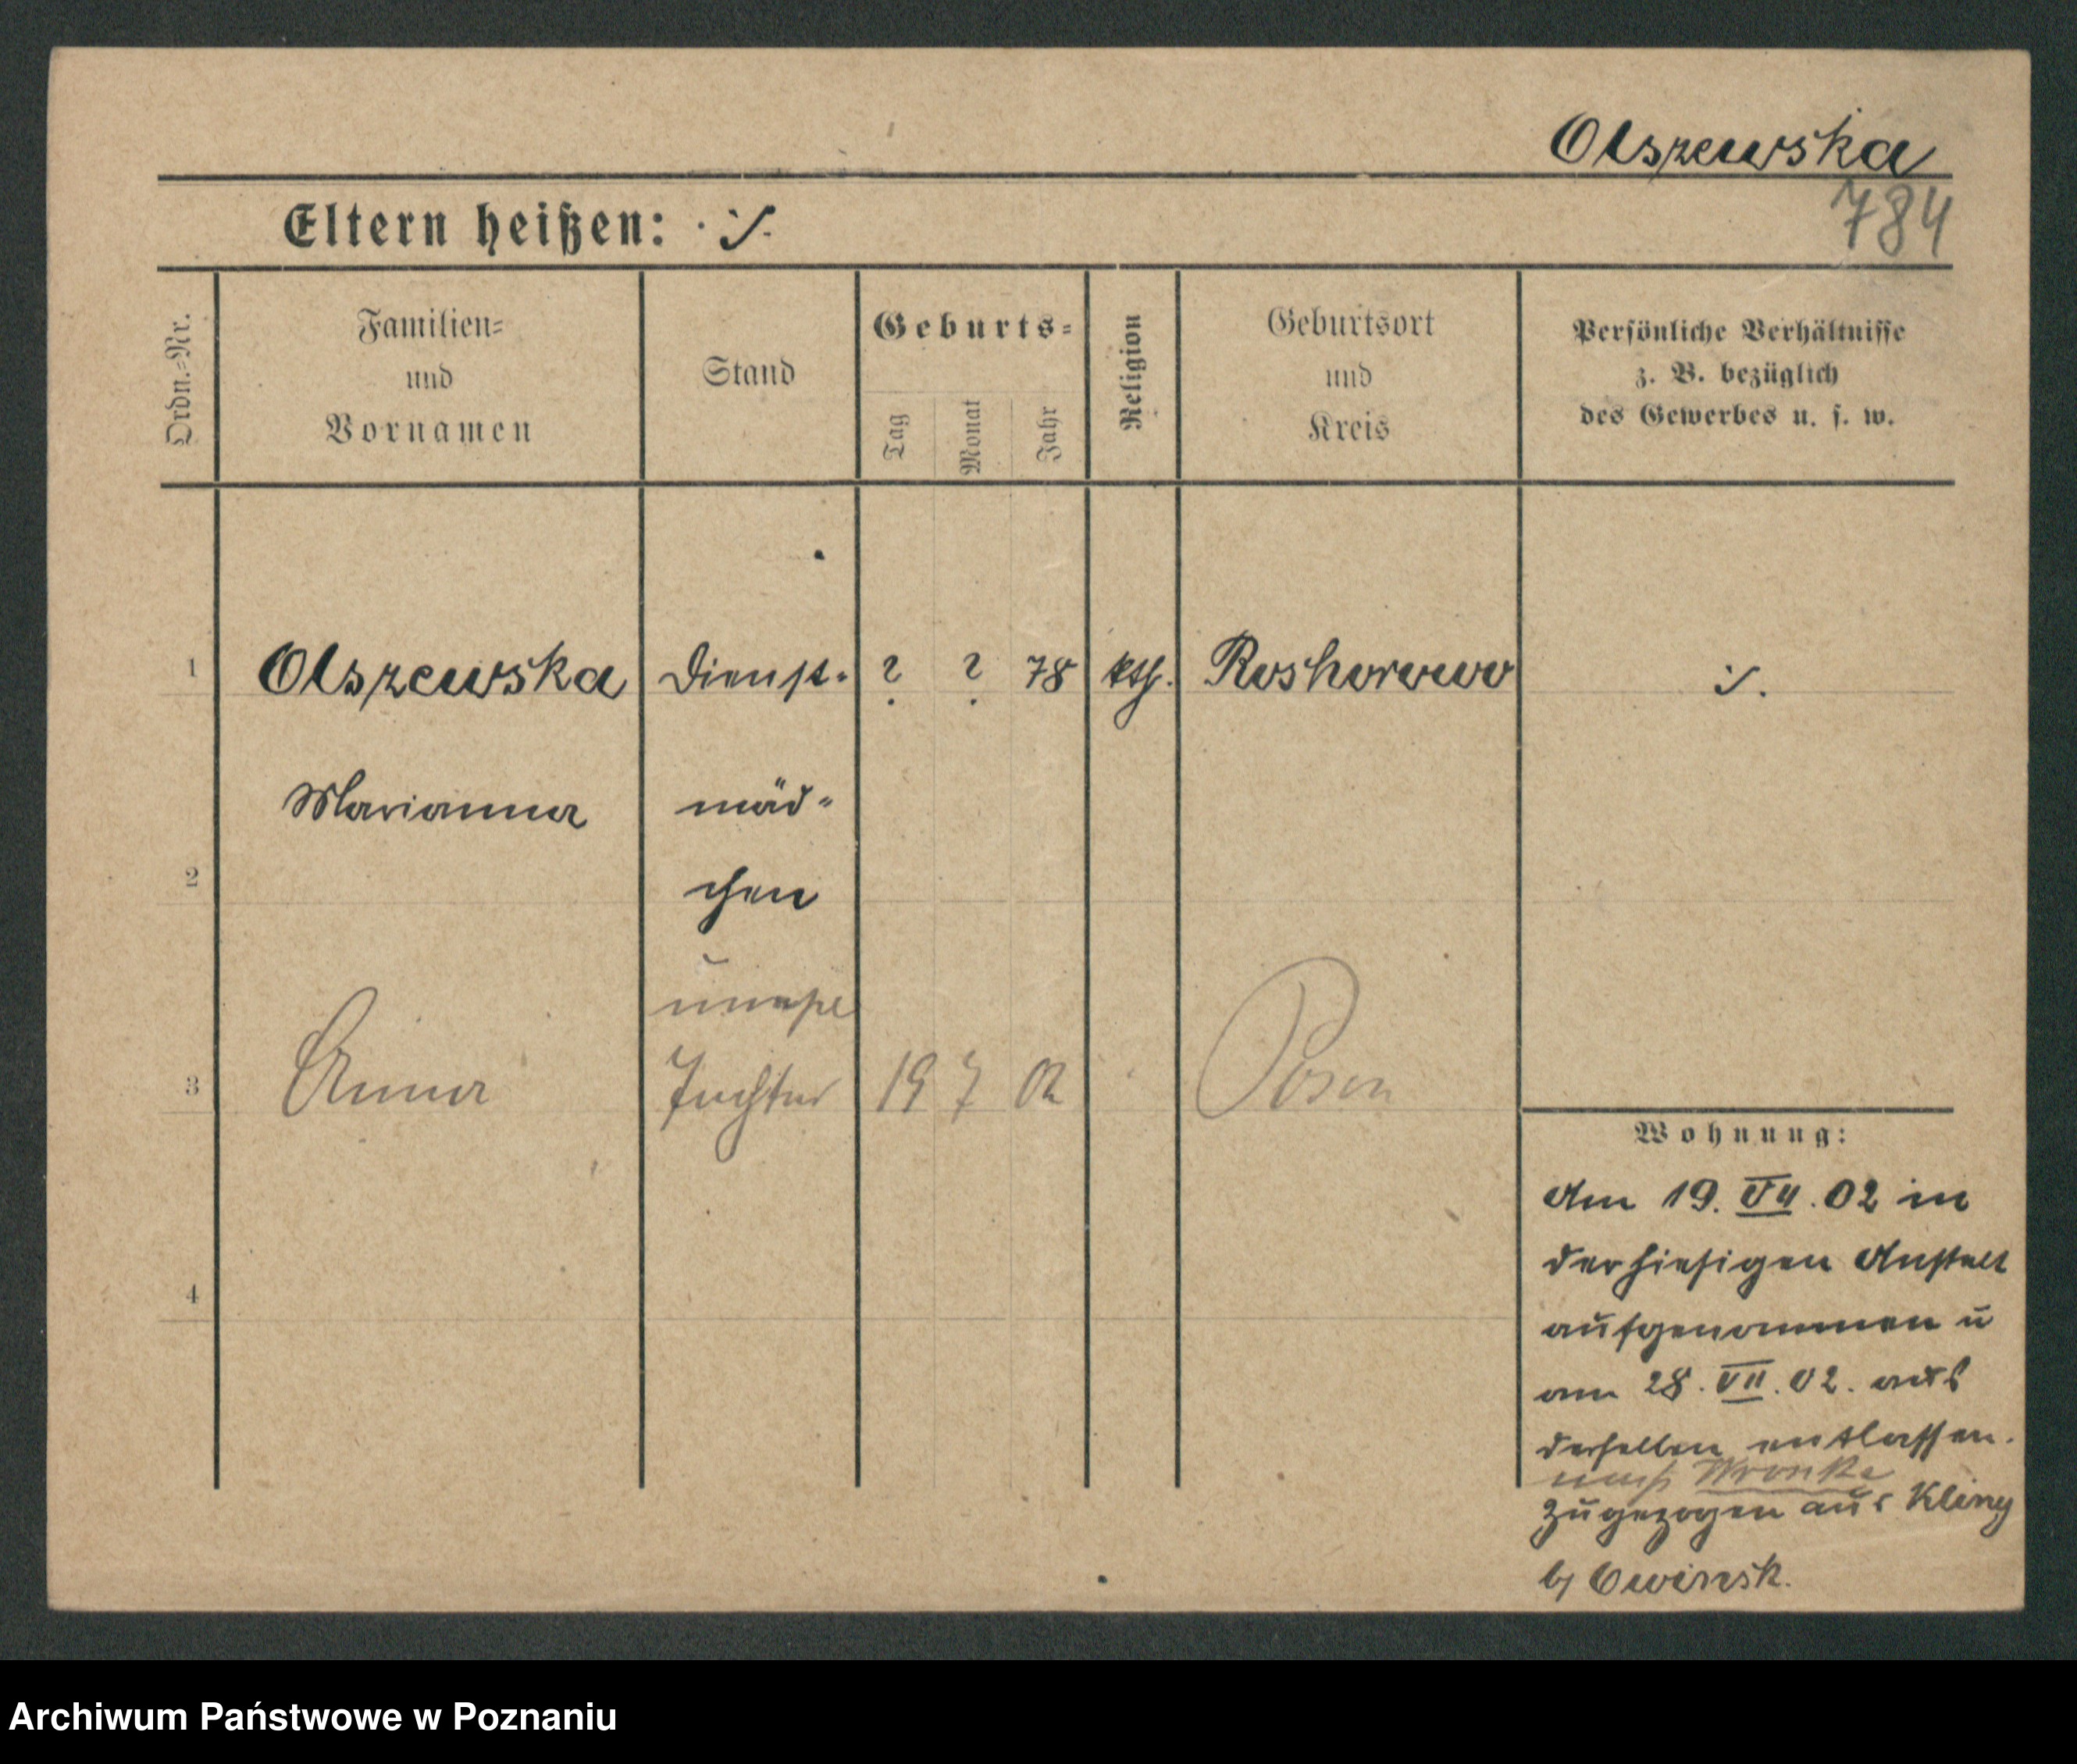 Olszewska
784
Eltern heißen: ·/.
Ordn.=Nr.
Familien=
und
Vornamen
Stand
Geburts=
Tag
Monat
Jahr
Religion
Geburtsort
und
Kreis
Persönliche Verhältnisse
z. B. bezüglich
des Gewerbes u. s. w.
1 Olszewska Dienst- ? ? 78 kth. ·/.
Marianna mäd-
2 chen
unehel
3 Anna Tochter 19 7 02 Posen
Wohnung:
Am 19. VII. 02 in
der hiesigen Anstalt
aufgenommen u
4
am 28. VII. 02. aus
derselben entlassen.
nach Wronke
Zugezogen aus Kliny
b/ Owinsk.
Archiwum Państwowe w Poznaniu